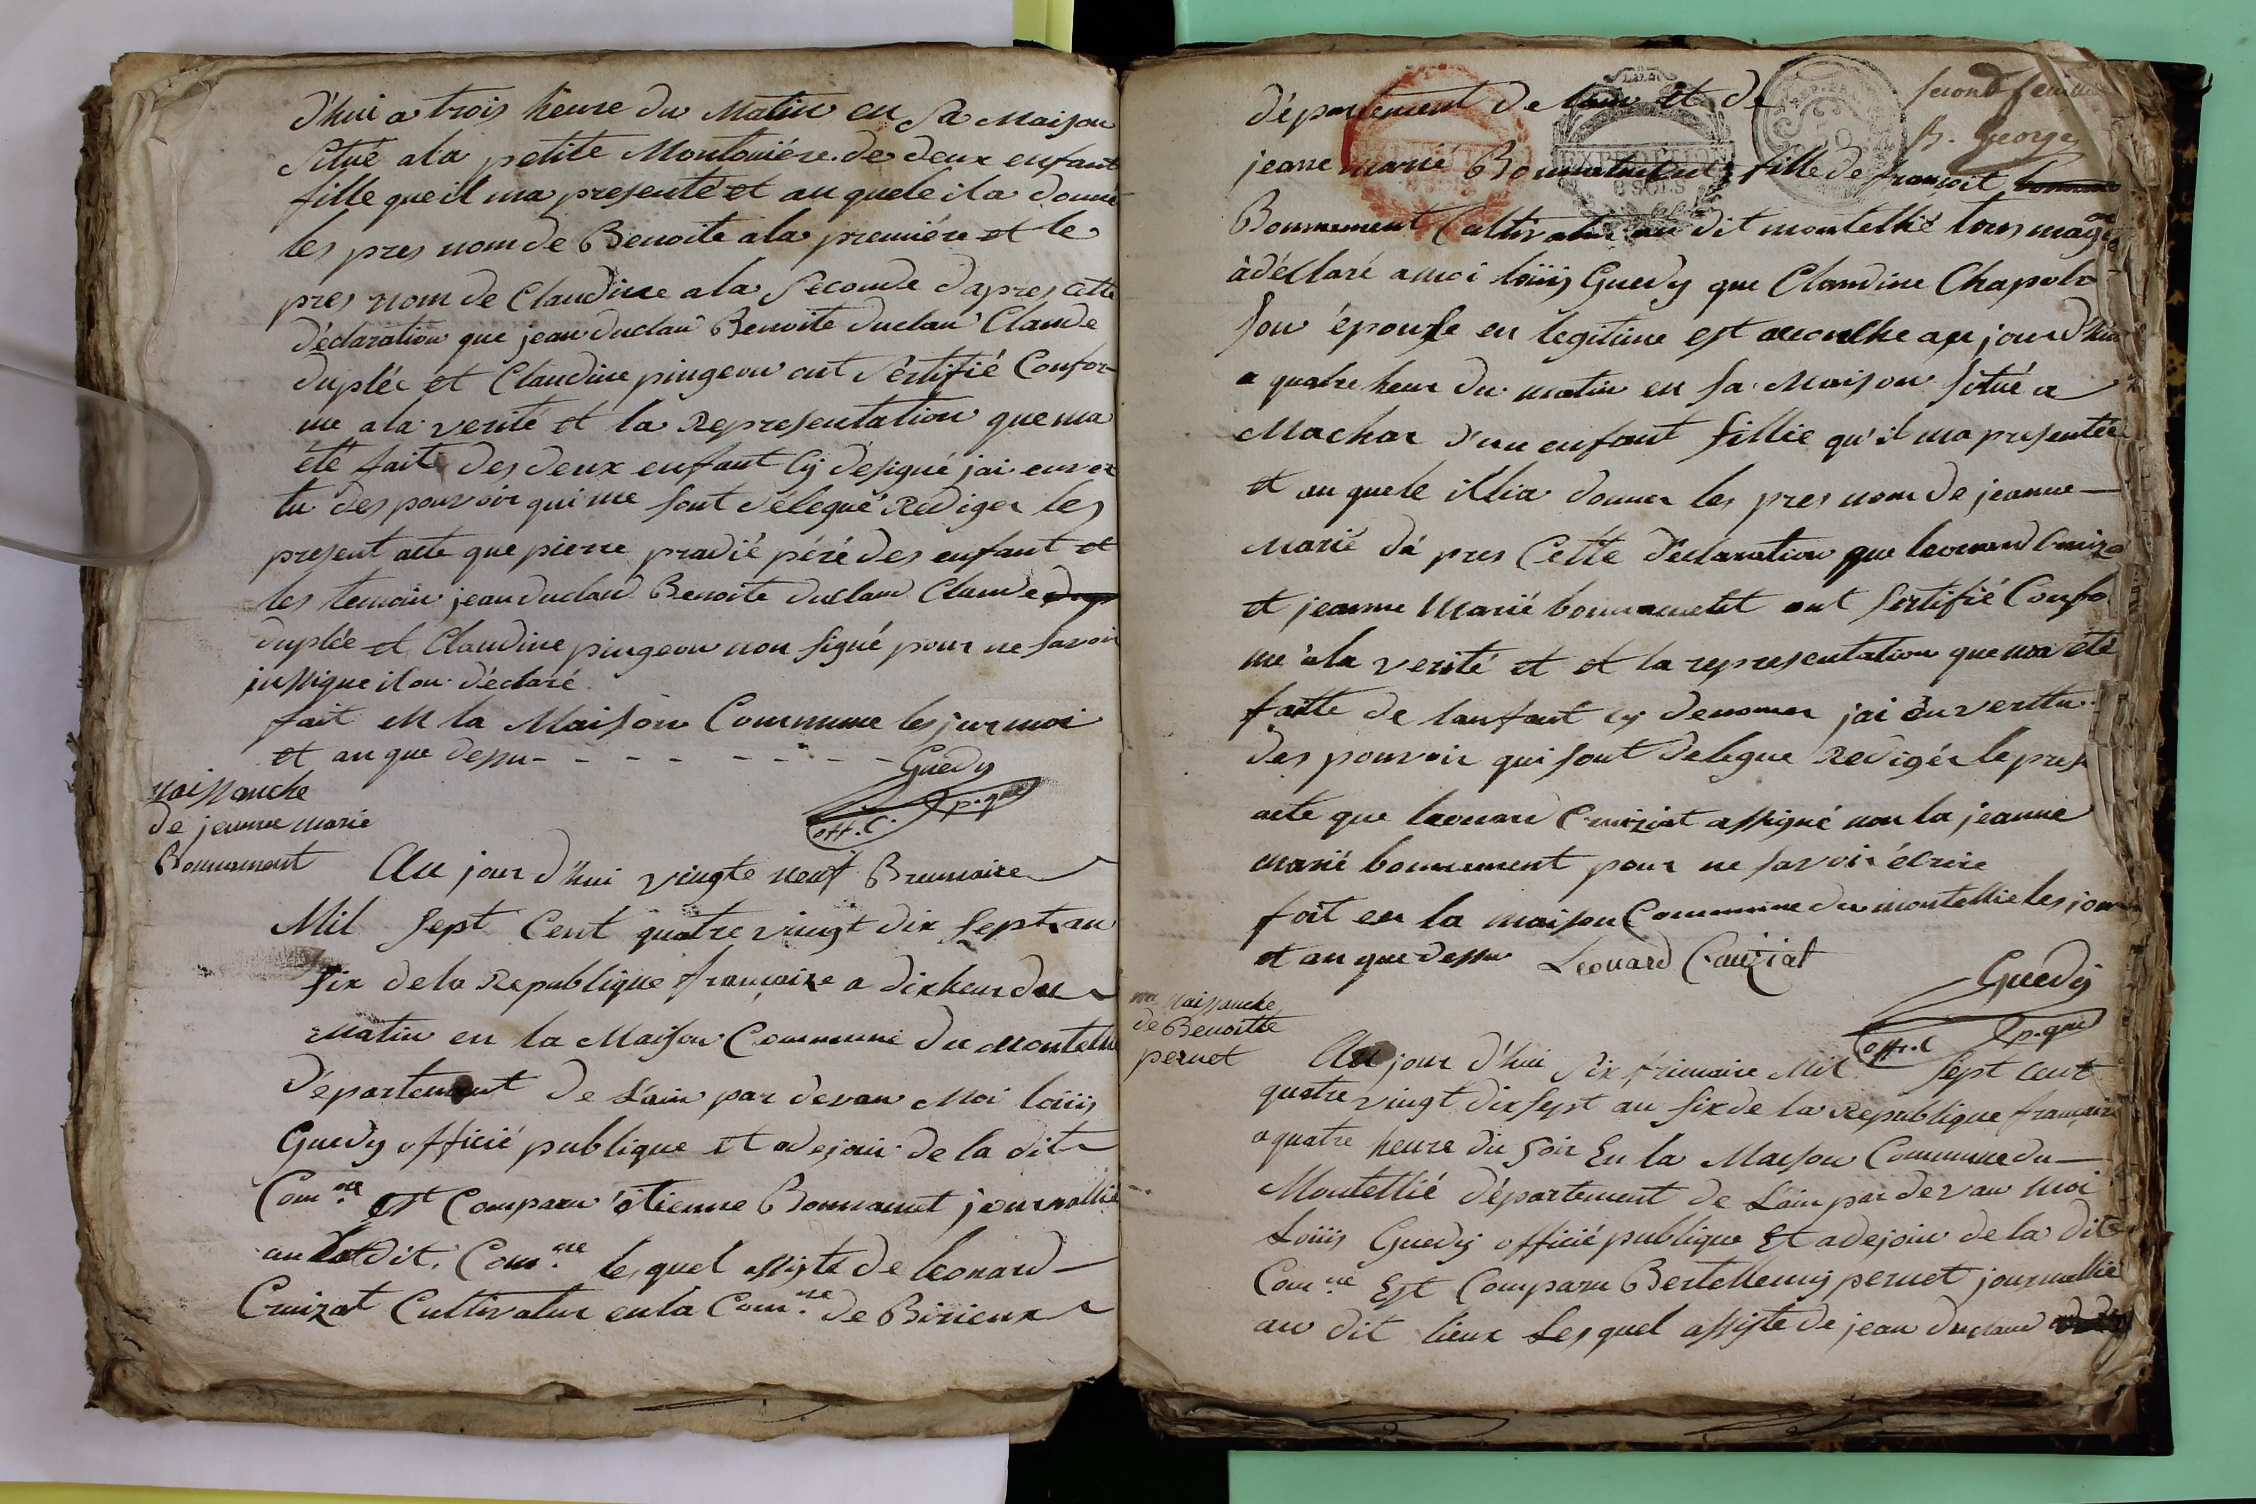 d'hui a trois heure du Matin en Sa Maison
Situé a la petite Montoniére de deux enfant
fille que il ma presenté et au quele il a donné
les pres nom de Benoite a la premiére et le
pres nom de Claudine a la Seconde dapres cette
déclaration que jean duclau Benoite duclau Claude
duplée et Claudine pingeon ont Sertifié Confor-
me a la verité et la Representation que ma
été fait des deux enfant Cy designé jai en ver
tu des pouvoir qui me sont délegué Rediger les
present acte que pierre pradié péré des enfant et
les temoin jean duclau Benoite duclau Claude
duplée et Claudine pingeon non signé pour ne savoir
insi que il on déclaré.
fait en la Maison Commune les jur moi
et an que dessu - - - - - - - - - Guedy
off. C. p. que
naissanche
de jeanne marie
Bonnament
Au jour d'hui vingte neuf Brumaire
Mil Sept Cent quatre vingt dix Sept an
Six de la Republique française a dix heur du
Matin en la Maison Commune du Montellié
Département de L'ain par devan Moi loüis
Guedy officié publique et adejoin de la dit
Com.ne Est Comparu étienne Bonnamet journallié
au dit. Com.ne lesquel assiste de leonard
Cruizat Cultivatur en la Com.ne de Birieux
second feuillet
B. George
département de lain et de
EXPEDITION
8 SOLS
jeanne marié Bonnament fille de françoit
Bonnument Cultivatur au dit montellié tous mage
à déclaré a moi loüis Guedy que Claudine Chapolo
Son épouse en legitime est acouche au jour d'hui
a quatre heur du matin en Sa Maison Sitúé a
Machar d'un enfant fillie qu'il ma presentée
et au quele illia donner les pres nom de jeanne
Marié dá pres Cette déclaration que leonard Cruiza
et jeanne Marié bonnament ont Sertifié Confo
me a la verité et et la representation que ma été
faitte de lanfant Cy denomer jai én verttu
des pouvoir qui sont delegue Redigér le pres
acte que leonard Cruiziat assigné non la jeanne
marié bonnument pour ne savoir écrire
fait en la maison Commune du montellié les jour
et an que dessu Leonard Cruiziat
Guedy
off. C p. que
naissanche
de Benoitte
peruet
Au jour d'hui Six frimaire Mil Sept Cent
quatre vingt dix Sept an Six de la Republique française
a quatre heure du Soir En la Maison Commune du
Montellié département de L'ain par devan moi
Loüis Guedy officié publique Et adejoin de la dite
Com.ne Est Comparu Bertellemy peruet journallié
au dit lieux Les quel assiste de jean duclaud